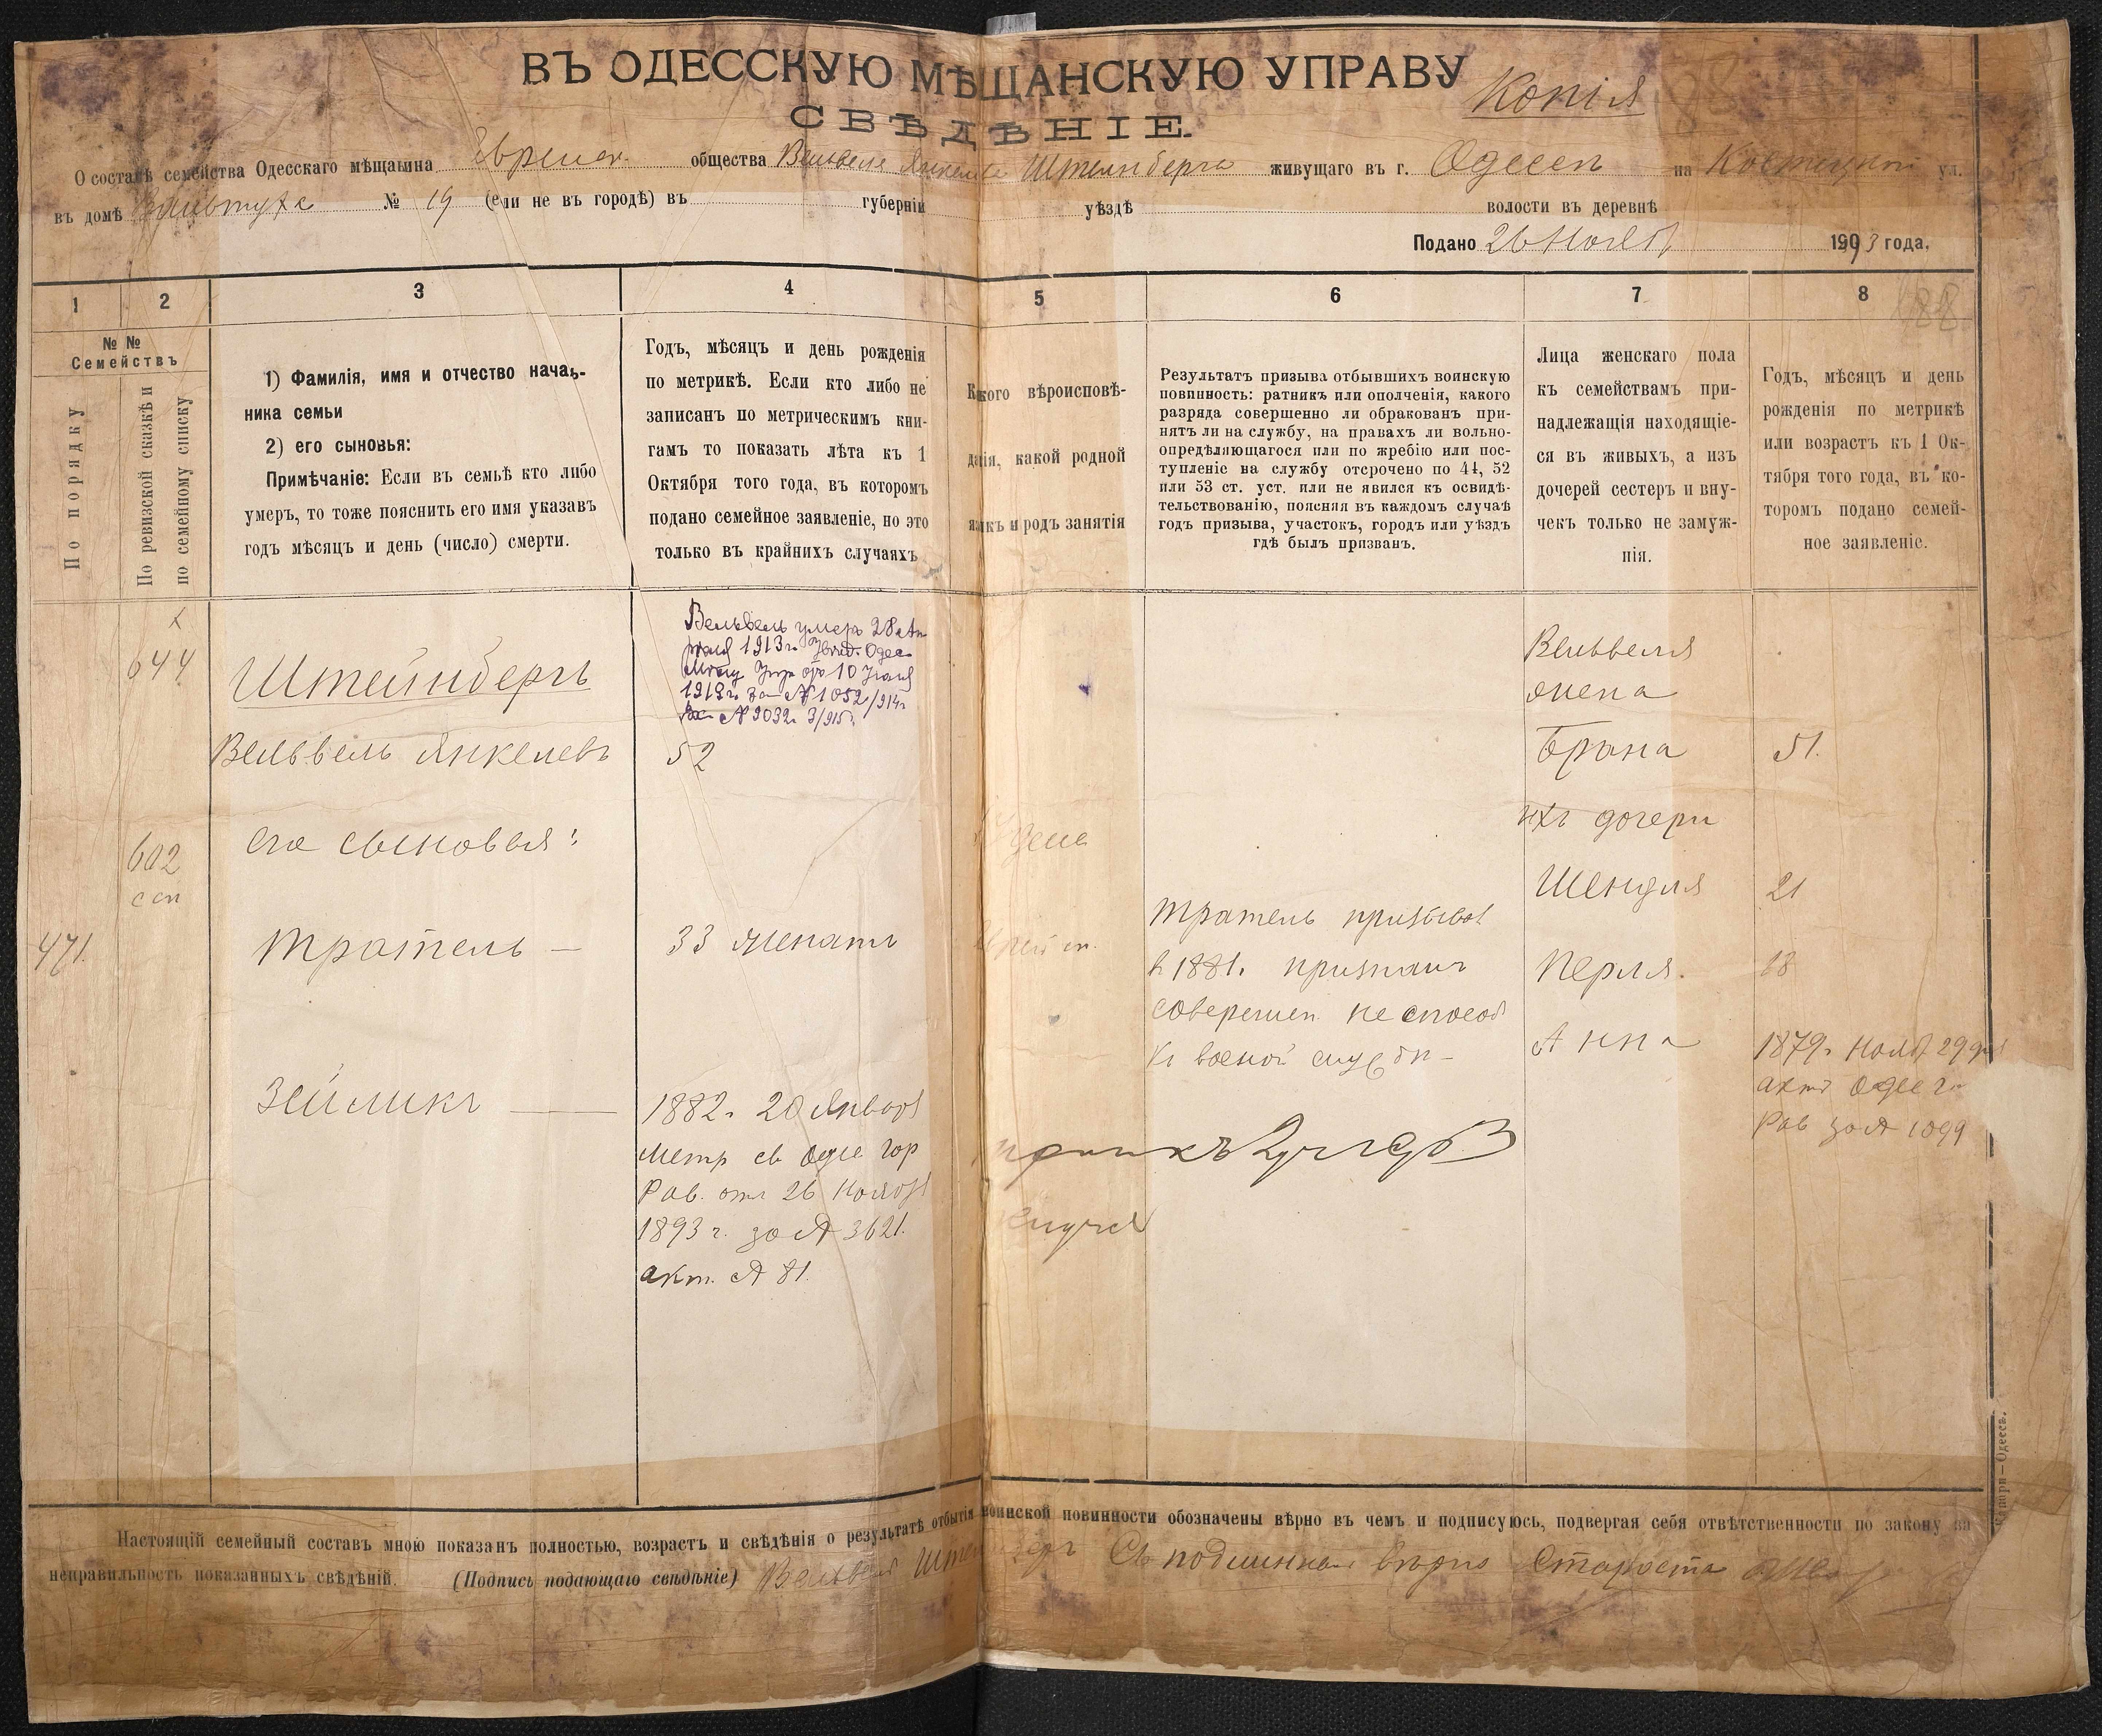 ВЪ ОДЕССКУЮ МѢЩАНСКУЮ УПРАВУ
Копія
СВѢДѢНІЕ.
О составѣ семейства Одесскаго мѣщанина Еврейск. общества Вельвеля Янкелева Штейнберга живущаго въ г. Одессѣ на Костецкой ул.
въ домѣ № 19 (если не въ городѣ) въ губерніи уѣздѣ волости въ деревнѣ
Подано 26 Нояб 1893 года.
1 2 3 4 5 6 7 8
188
№ №
Семействъ
По порядку
По ревизской сказкѣ и
по семейному списку
1) Фамилія, имя и отчество началь-
ника семьи
2) его сыновья:
Примѣчаніе: Если въ семьѣ кто либо
умеръ, то тоже пояснить его имя указавъ
годъ мѣсяцъ и день (число) смерти.
Годъ, мѣсяцъ и день рожденія
по метрикѣ. Если кто либо не
записанъ по метрическимъ кни-
гамъ то показать лѣта къ 1
Октября того года, въ которомъ
подано семейное заявленіе, но это
только въ крайнихъ случаяхъ
Какого вѣроисповѣ-
данія, какой родной
языкъ и родъ занятія
Результатъ призыва отбывшихъ воинскую
повинность: ратникъ или ополченія, какого
разряда совершенно ли обракованъ при-
нятъ ли на службу, на правахъ ли вольно-
опредѣляющагося или по жребію или пос-
тупленіе на службу отсрочено по 44, 52
или 53 ст. уст. или не явился къ освидѣ-
тельствованію, поясняя въ каждомъ случаѣ
годъ призыва, участокъ, городъ или уѣздъ
гдѣ былъ призванъ.
Лица женскаго пола
къ семействамъ при-
надлежащія находящіе-
ся въ живыхъ, а изъ
дочерей сестеръ и вну-
чекъ только не замуж-
нія.
Годъ, мѣсяцъ и день
рожденія по метрикѣ
или возрастъ къ 1 Ок-
тября того года, въ ко-
торомъ подано семей-
ное заявленіе.
644
Штейнбергъ
Вельвель умеръ 28 Ап
реля 1913 г. Одес.
Мѣщ Упр отъ 10 Іюня
1913 г. за № 1052/914 г
№ 9032 3/915 г.
Вельвеля
жена
Вельвель Янкелевъ
52
Брана
51.
его сыновья:
ихъ дочери
602
ссп
Шендля
21
471.
Тратель —
33 женатъ
Тратель призывал
в 1881. признанъ
совершен. неспособ
къ военой службѣ —
Перля.
18
Анна
1879 г. Нояб 29 дня
актъ Одес гор
Рав за № 1099
Зейликъ —
1882 г. 20 Января
Метр св Одес гор
Рав. отъ 26 Ноября
1893 г. за № 3621.
акт. № 81.
Настоящій семейный составъ мною показанъ полностью, возрастъ и свѣдѣнія о результатѣ отбытія воинской повинности обозначены вѣрно въ чемъ и подписуюсь, подвергая себя отвѣтственности по закону за
неправильность показанныхъ свѣдѣній. (Подпись подающаго свѣдѣніе) Вельвель Штейнбергъ Съ подлиннымъ вѣрно Староста